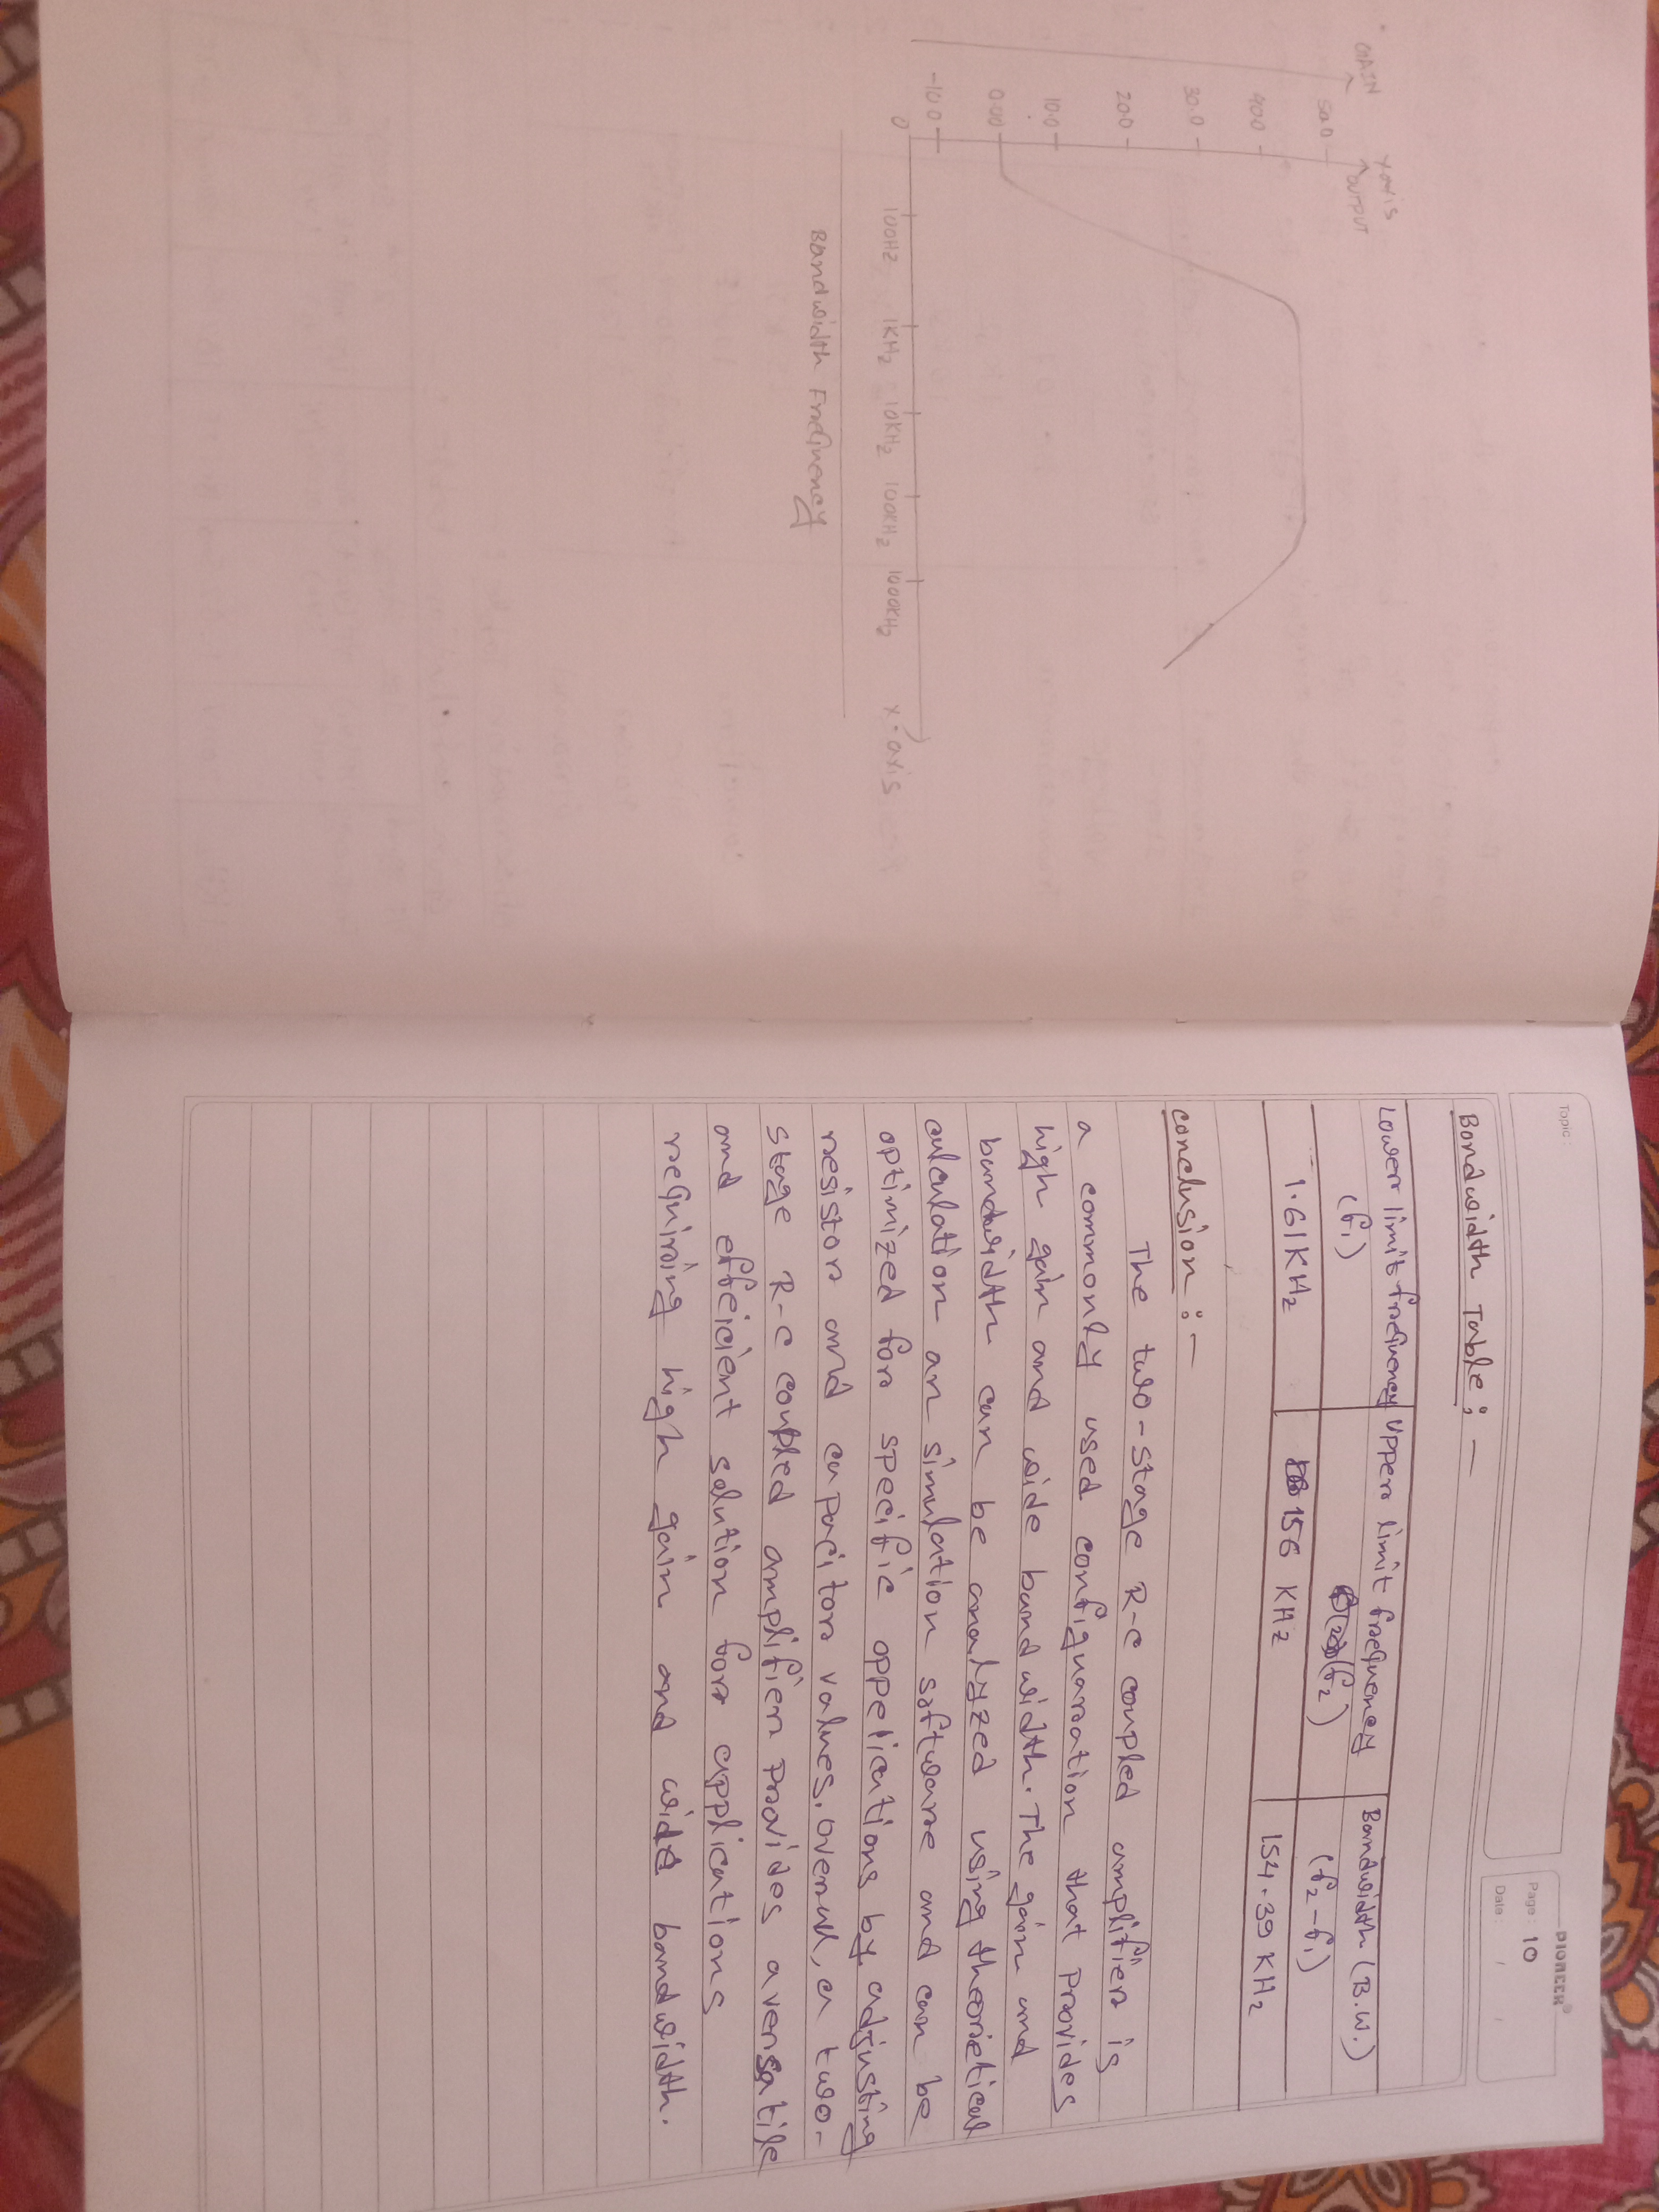 GAIN
Y axis
OUTPUT
50.0
40.0
30.0
20.0
10.0
0.00
-10.0
0
100HZ 1KHz 10KHz 100KHz 1000KHz X-axis
Bandwidth Frequency
Topic :
PIONEER®
Page : 10
Date : / /
Bandwidth Table : —
Lower limit frequency (f1) Upper limit frequency (f2) Bandwidth (B.W.) (f2 - f1)
1.61KHz 156 KHz 154.39 KHz
conclusion : —
The two-stage R-C coupled amplifier is
a commonly used configuration that provides
high gain and wide bandwidth. The gain and
bandwidth can be analyzed using theoretical
calculation an simulation software and can be
optimized for specific oppelications by adjusting
resistor and capacitor values. overall, a two-
stage R-C coupled amplifier provides a versatile
and effeicient solution for applications
requiring high gain and wide bandwidth.